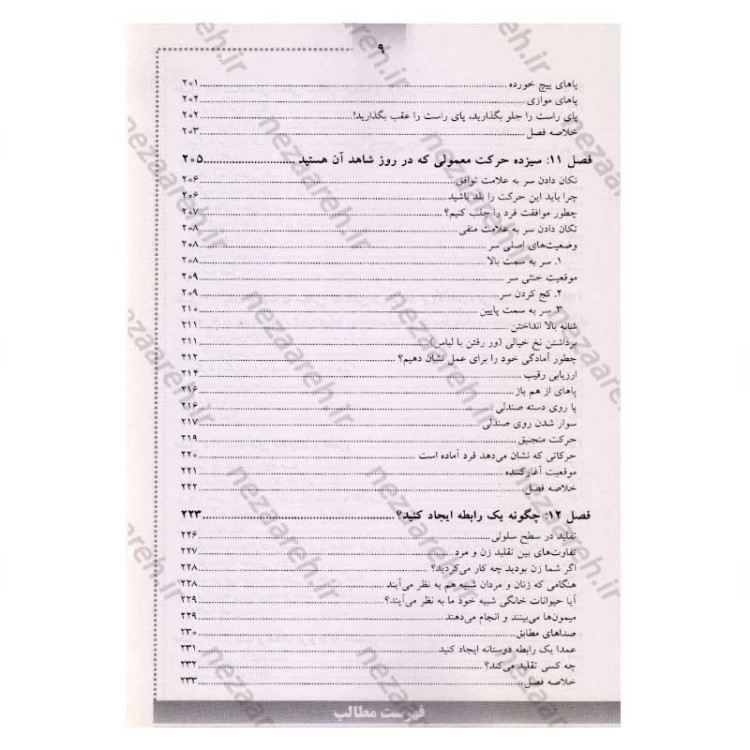 ۹
پاهای پیچ خورده ................ ۲۰۱
پاهای موازی ................ ۲۰۲
پای راست را جلو بگذارید، پای راست را عقب بگذارید! ................ ۲۰۲
خلاصه فصل ................ ۲۰۳
فصل ۱۱: سیزده حرکت معمولی که در روز شاهد آن هستید ................ ۲۰۵
تکان دادن سر به علامت توافق ................ ۲۰۶
چرا باید این حرکت را بلد باشید ................ ۲۰۶
چطور موافقت فرد را جلب کنیم؟ ................ ۲۰۷
تکان دادن سر به علامت منفی ................ ۲۰۸
وضعیت‌های اصلی سر ................ ۲۰۸
۱. سر به سمت بالا ................ ۲۰۸
موقعیت خنثی سر ................ ۲۰۹
۲. کج کردن سر ................ ۲۰۹
۳. سر به سمت پایین ................ ۲۱۰
شانه بالا انداختن ................ ۲۱۱
برداشتن نخ خیالی (ور رفتن با لباس) ................ ۲۱۱
چطور آمادگی خود را برای عمل نشان دهیم؟ ................ ۲۱۲
ارزیابی رقیب ................ ۲۱۴
پاهای از هم باز ................ ۲۱۶
پا روی دسته صندلی ................ ۲۱۶
سوار شدن روی صندلی ................ ۲۱۷
حرکت منجنیق ................ ۲۱۹
حرکاتی که نشان می‌دهد فرد آماده است ................ ۲۲۰
موقعیت آغازکننده ................ ۲۲۱
خلاصه فصل ................ ۲۲۲
فصل ۱۲: چگونه یک رابطه ایجاد کنید؟ ................ ۲۲۳
تقلید در سطح سلولی ................ ۲۲۶
تفاوت‌های بین تقلید زن و مرد ................ ۲۲۷
اگر شما زن بودید چه کار می‌کردید؟ ................ ۲۲۸
هنگامی که زنان و مردان شبیه هم به نظر می‌آیند ................ ۲۲۸
آیا حیوانات خانگی شبیه خود ما به نظر می‌آیند؟ ................ ۲۲۹
میمون‌ها می‌بینند و انجام می‌دهند ................ ۲۲۹
صداهای مطابق ................ ۲۳۰
عمدا یک رابطه دوستانه ایجاد کنید ................ ۲۳۱
چه کسی تقلید می‌کند؟ ................ ۲۳۲
خلاصه فصل ................ ۲۳۳
فهرست مطالب
nezaareh.ir